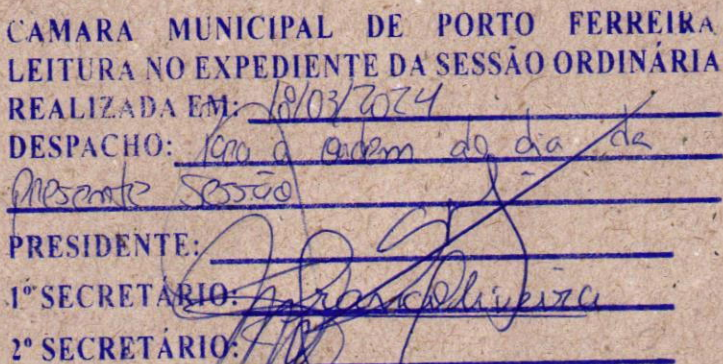 CAMARA MUNICIPAL DE PORTO FERREIRA
LEITURA NO EXPEDIENTE DA SESSÃO ORDINÁRIA
REALIZADA EM: 18/03/2024
DESPACHO: para a ordem do dia da
presente sessão
PRESIDENTE:
1º SECRETÁRIO: Oliveira
2º SECRETÁRIO: